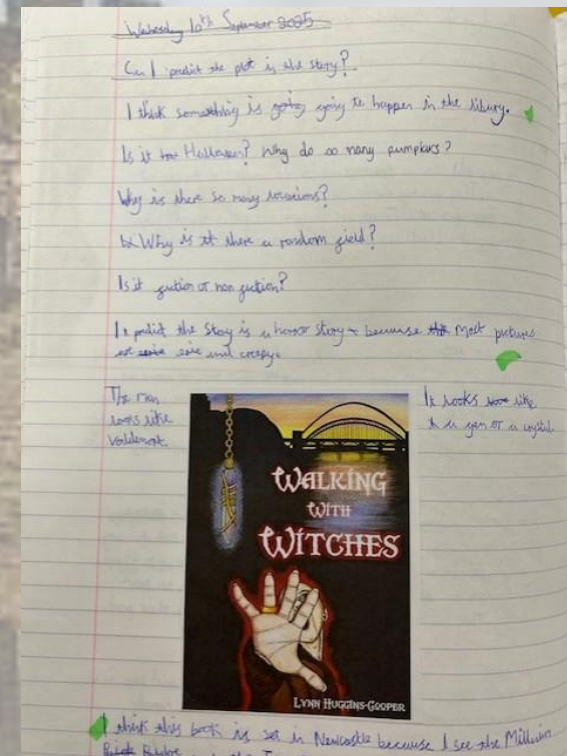 Wednesday 10th September 2025
Can I predict the plot in the story?
I think something is going going to happen in the libury.
Is it Halloween? Why do so many pumpkins?
Why is there so many locations?
Why is it there a random field?
Is it fiction or non fiction?
I predict the story is a horror story because most pictures
eire and creepy.
The man
looks like
Voldemort.
It looks like
a gem or a crystal
WALKING
WITH
WITCHES
LYNN HUGGINS-COOPER
I think this book is set in Newcastle because I see the Millinium